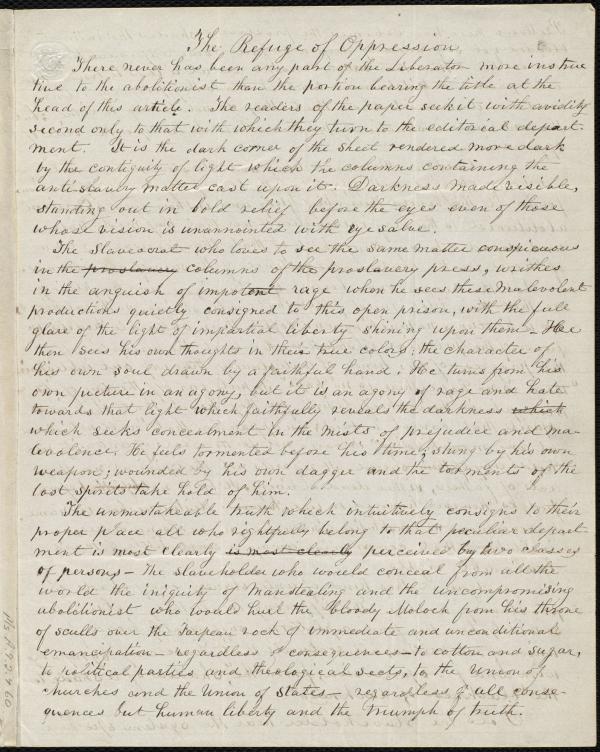 The Refuge of Oppression
There never has been any part of the Liberator more instruc
tive to the abolitionist than the portion bearing the title at the
head of this article. The readers of the paper seek it with avidity
second only to that with which they turn to the editorial depart-
ment. It is the dark corner of the sheet rendered more dark
by the contiguity of light which the columns containing the
anti-slavery matter cast upon it. Darkness made visible,
standing out in bold relief before the eyes even of those
whose vision is unannointed with eye salve.
The Slaveocrat who loves to see the same matter conspicuous
in the proslavery columns of the proslavery press, writhes
in the anguish of impotent rage when he sees these malevolent
productions quietly consigned to this open prison, with the full
glare of the light of impartial liberty shining upon them. He
then sees his own thoughts in their true colors; the character of
his own soul drawn by a faithful hand. He turns from his
own picture in an agony, but it is an agony of rage and hate
towards that light which faithfully reveals the darkness which
which seeks concealment in the mists of prejudice and ma-
levolence. He feels tormented before his time; stung by his own
weapon; wounded by his own dagger and the torments of the
lost spirits take hold of him.
The unmistakeable truth which intuitively consigns to their
proper place all who rightfully belong to that peculiar depart
ment is most clearly is most clearly perceived by two classes
of persons - the slaveholder who would conceal from all the
world the iniquity of manstealing and the uncompromising
abolitionist who would hurl the bloody Moloch from his throne
of sculls over the Tarpean rock of immediate and unconditional
emancipation - regardless of consequences - to cotton and sugar,
to political parties and theological sects, to the Union of
churches and the Union of States - regardless of all conse-
quences but human liberty and the triumph of truth.